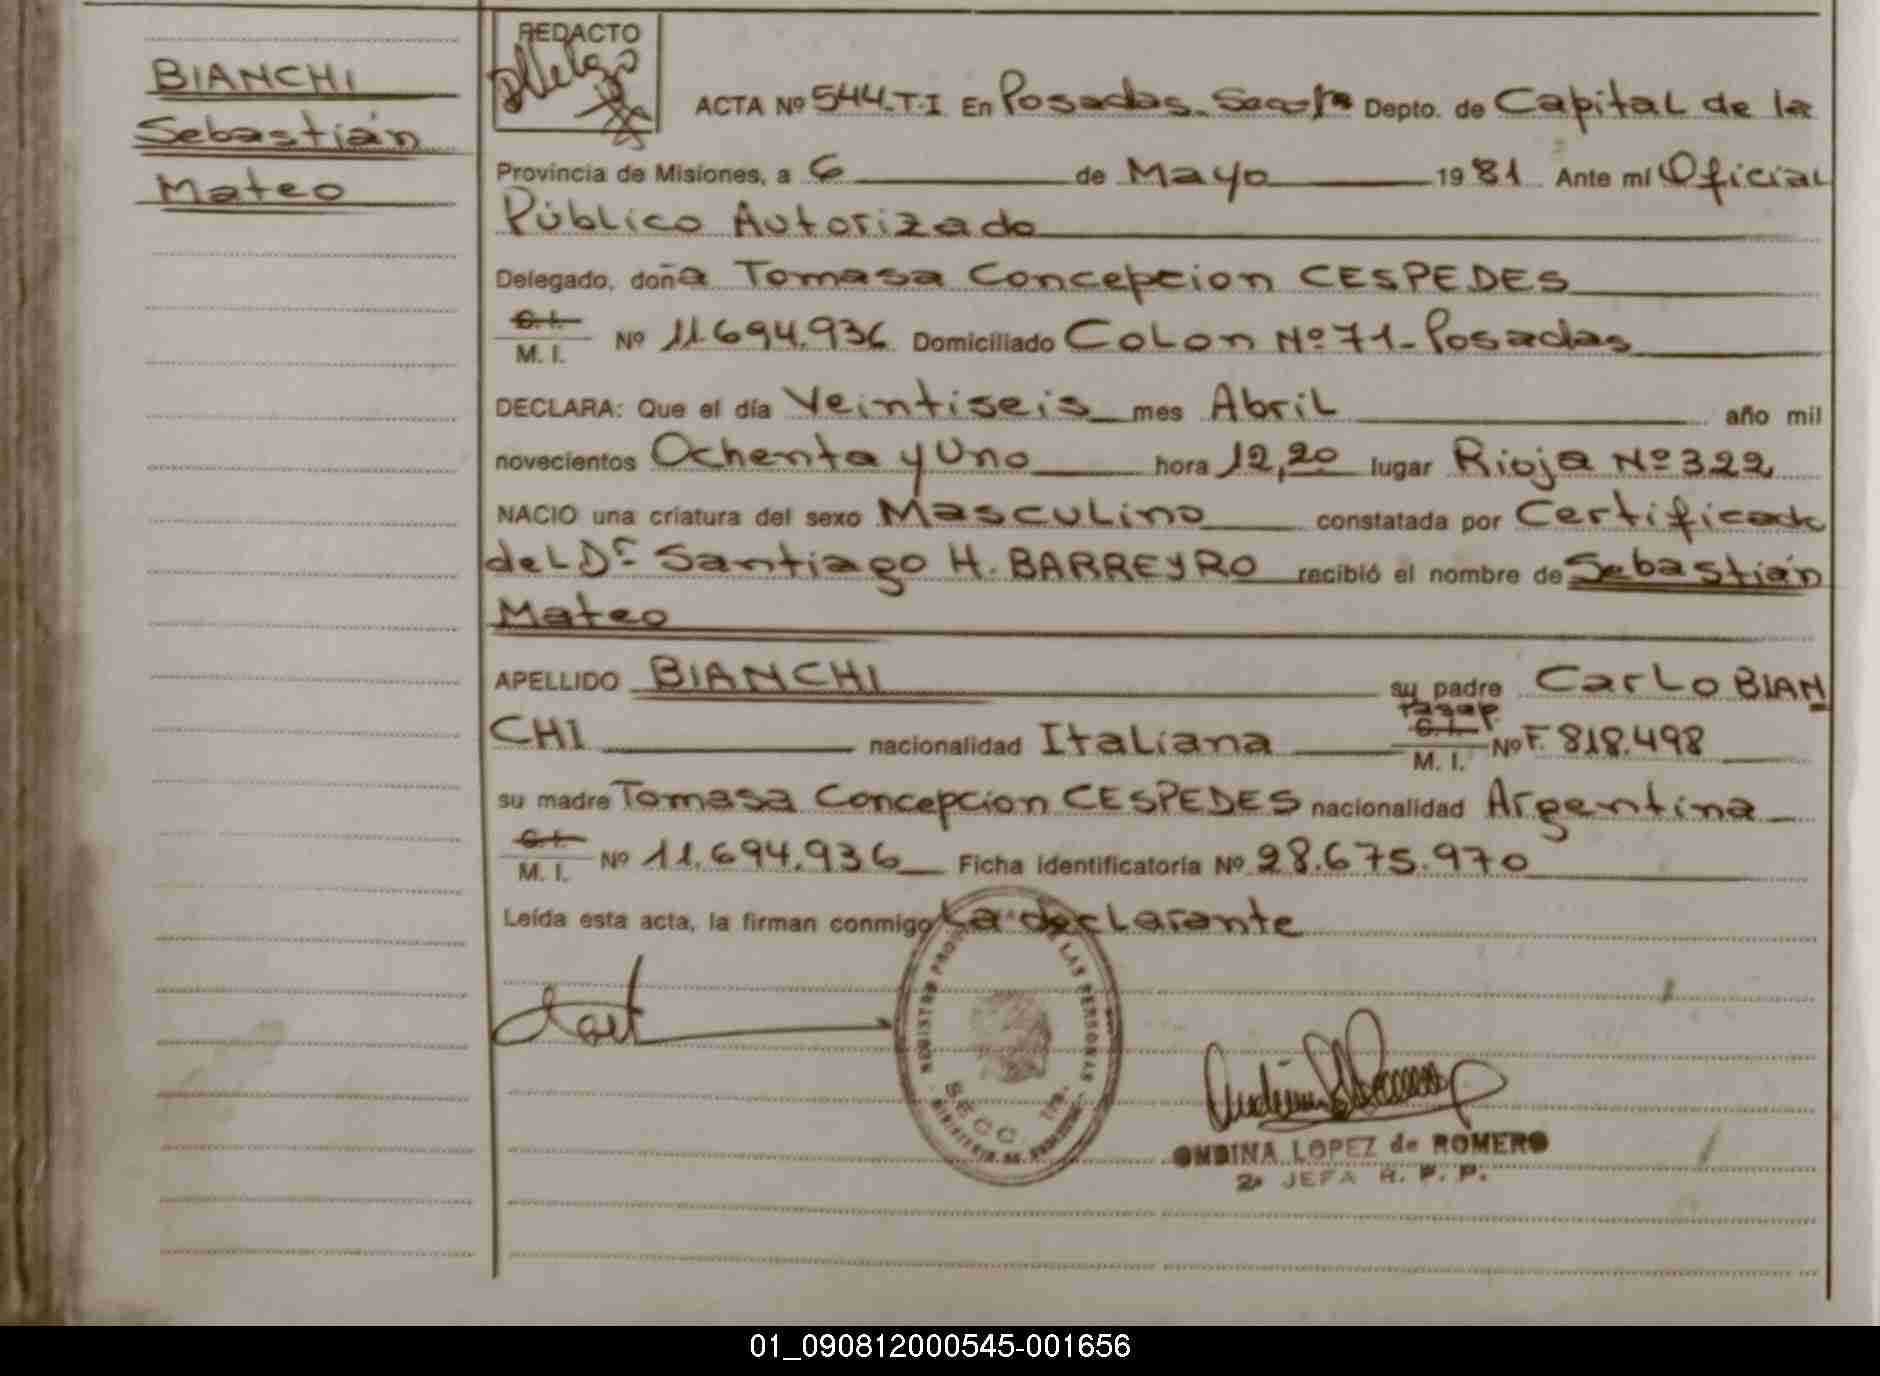 BIANCHI
Sebastián
Mateo
REDACTO
ACTA Nº 544-T.I En Posadas Depto. de Capital de la
Provincia de Misiones, a 6 de Mayo 1981 Ante mí Oficial
Público Autorizado
Delegado, doña Tomasa Concepcion CESPEDES
C. I.
M. I. Nº 11.694.936 Domiciliado Colon Nº 71-Posadas
DECLARA: Que el día Veintiseis mes Abril año mil
novecientos Ochenta y Uno hora 12,20 lugar Rioja Nº 322
NACIO una criatura del sexo Masculino constatada por Certificado
del Dr Santiago H. BARREYRO recibió el nombre de Sebastián
Mateo
APELLIDO BIANCHI su padre Carlo BIAN
CHI nacionalidad Italiana C. I. M. I. Nº F. 818.498
su madre Tomasa Concepcion CESPEDES nacionalidad Argentina
C. I.
M. I. Nº 11.694.936 Ficha identificatoria Nº 28.675.970
Leída esta acta, la firman conmigo La declarante
REGISTRO DE LAS PERSONAS
SECC.
ONDINA LOPEZ de ROMERO
2ª JEFA R. P. P.
01_090812000545-001656